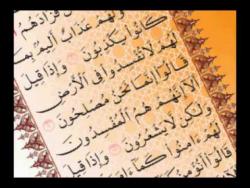 فَزَادَهُمُ
لَهُمْ عَذَابٌ أَلِيمٌ بِمَا
كَانُوا يَكْذِبُونَ وَإِذَا قِيلَ
لَهُمْ لَا تُفْسِدُوا فِي الْأَرْضِ
قَالُوا إِنَّمَا نَحْنُ مُصْلِحُونَ
أَلَا إِنَّهُمْ هُمُ الْمُفْسِدُونَ
وَلَٰكِن لَا يَشْعُرُونَ وَإِذَا قِيلَ
لَهُمْ ءَامِنُوا كَمَا ءَامَنَ
قَالُوا أَنُؤْمِنُ